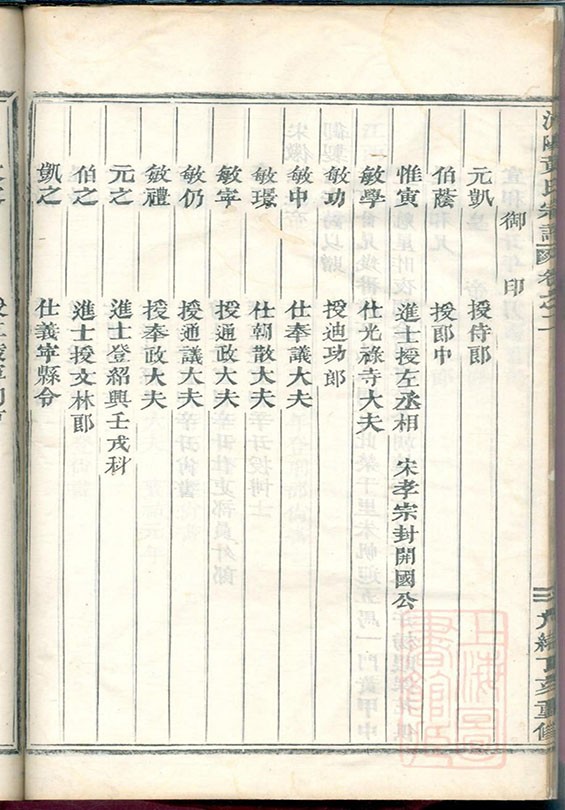 御印
元凱 授侍郎
伯蔭 授郎中
惟寅 進士授左丞相 宋孝宗封開國公
敏學 仕光祿寺大夫
敏功 授迪功郎
敏中 仕奉議大夫
敏璟 仕朝散大夫
敏寧 授通政大夫
敏仍 授通議大夫
敏禮 授奉政大夫
元之 進士登紹興壬戌科
伯之 進士授文林郎
凱之 仕義寧縣令
氏宗譜 卷之二
二 光緒丁亥重修
上海圖書館藏